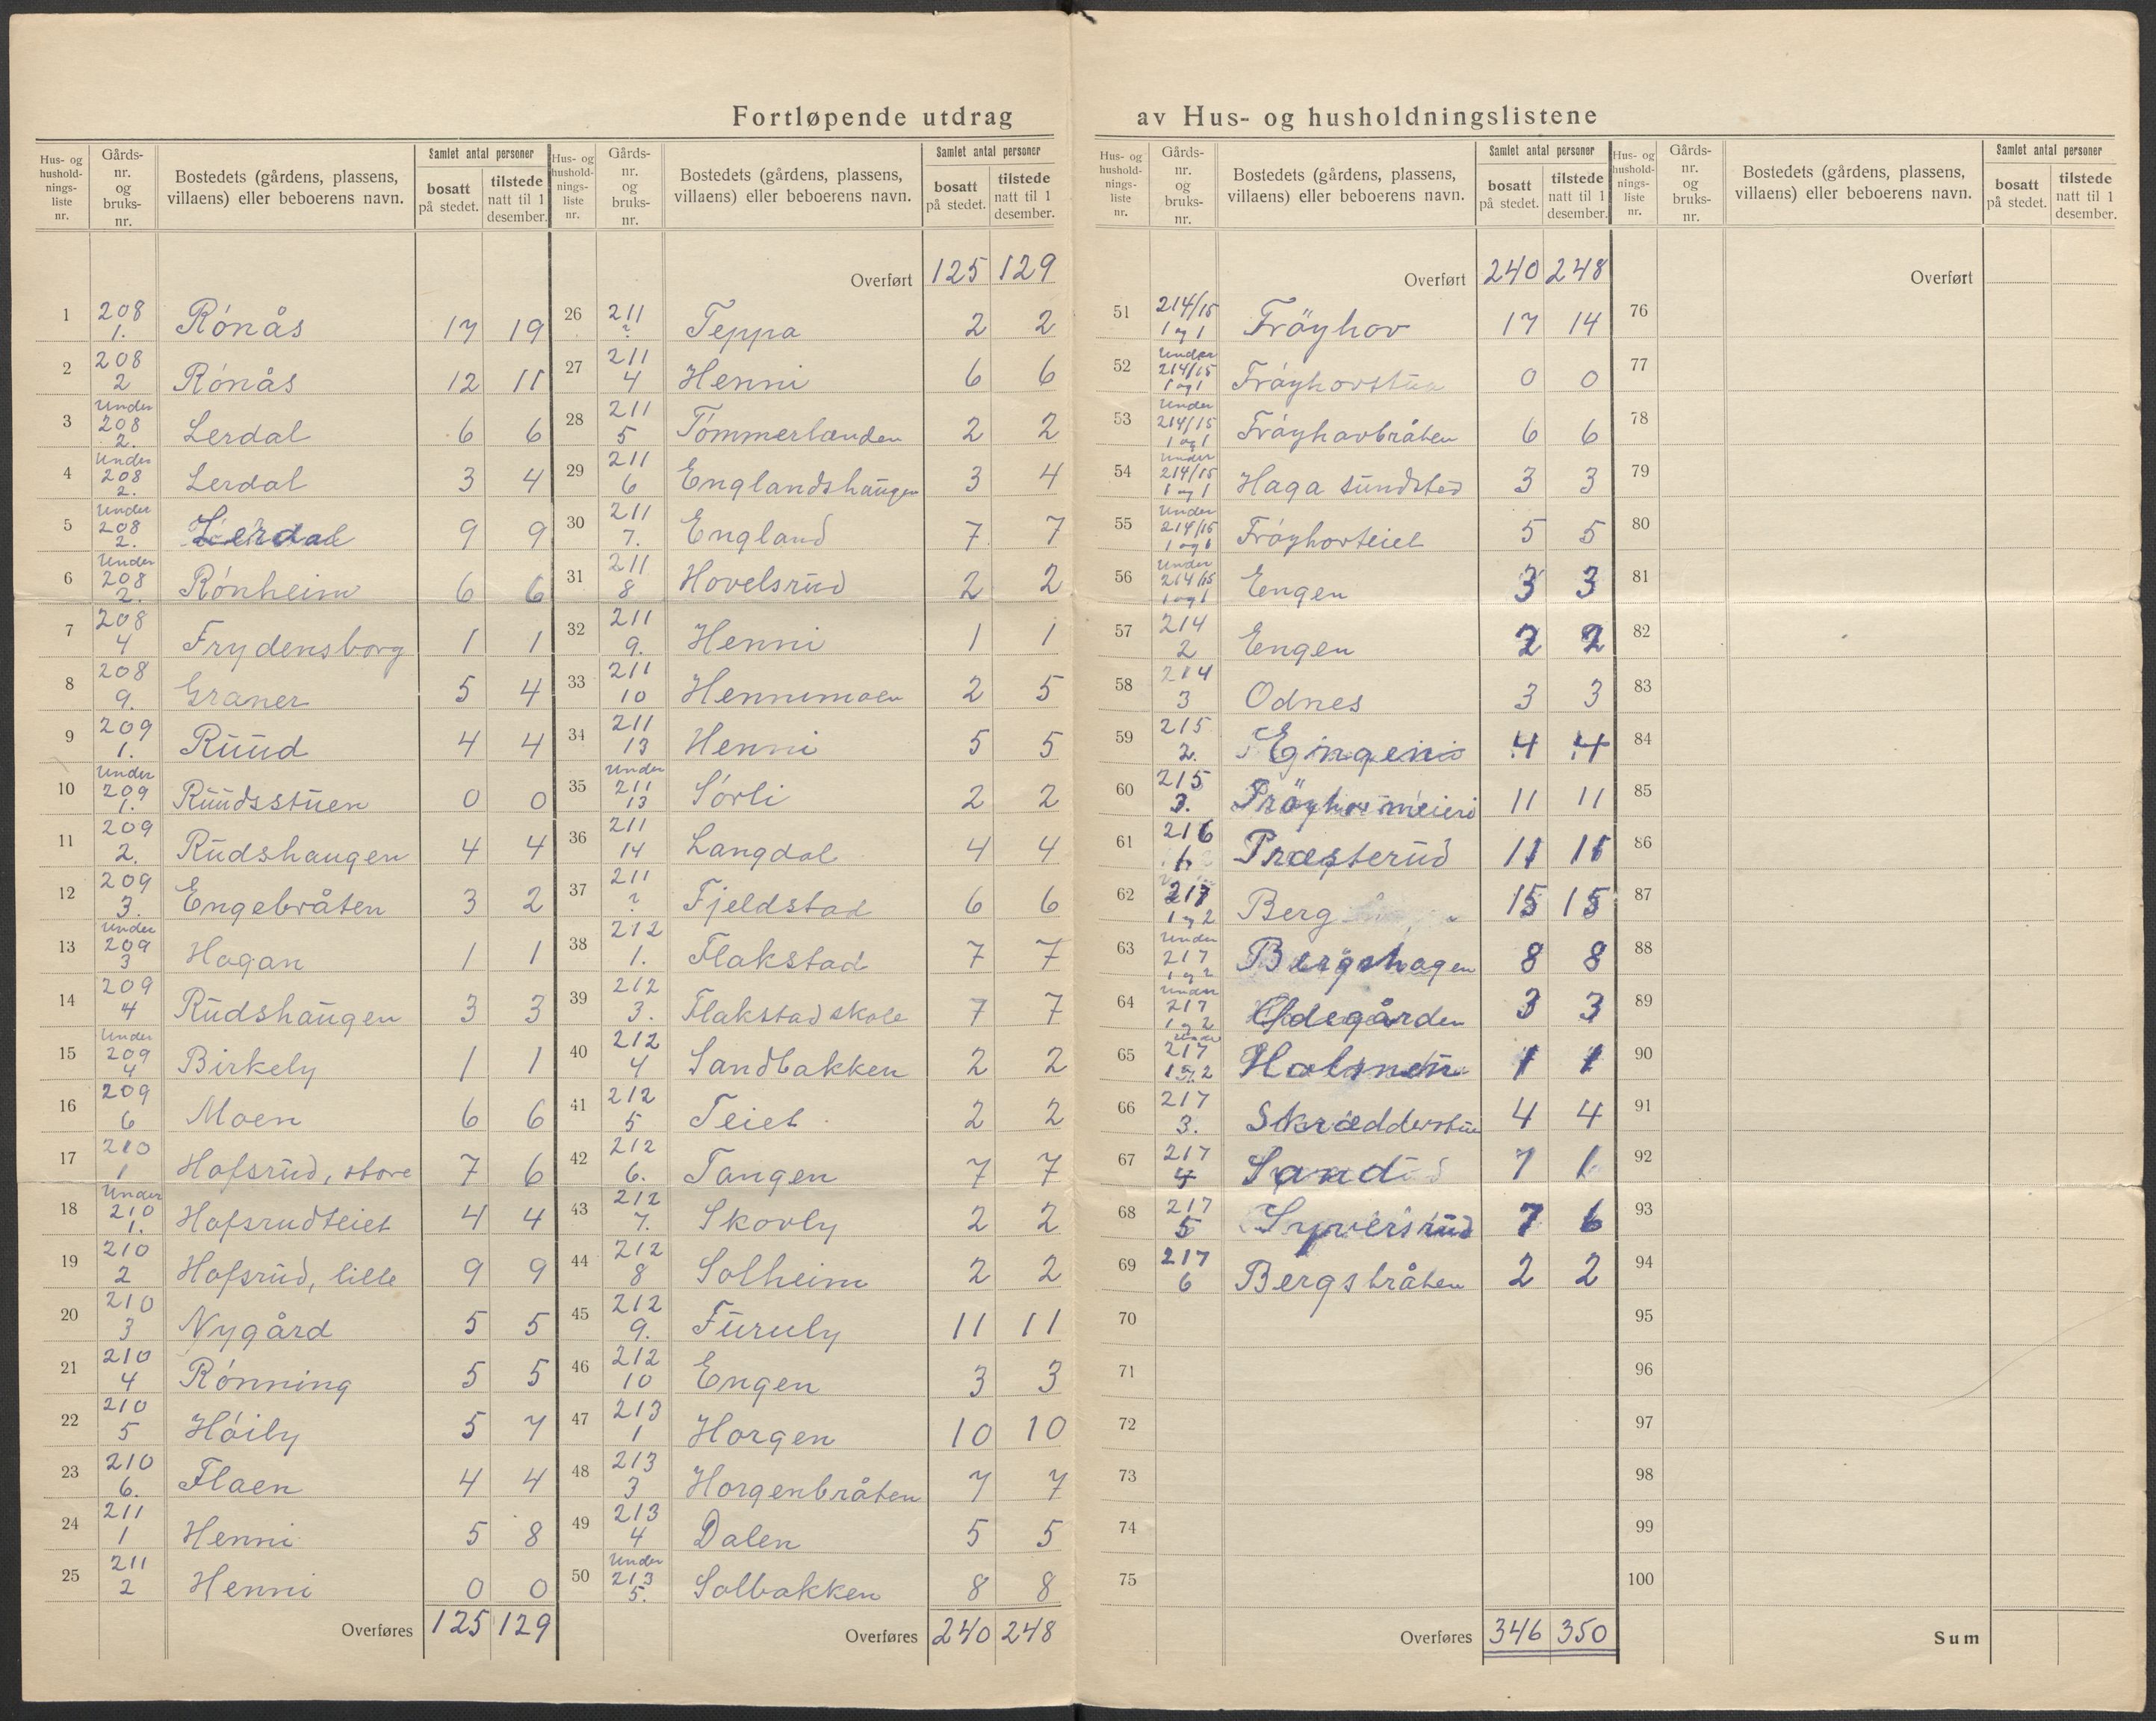 Fortløpende utdrag av Hus- og husholdningslistene
Hus- og husholdnings-liste nr. | Gårds-nr. og bruks-nr. | Bostedets (gårdens, plassens, villaens) eller beboerens navn. | Samlet antal personer | bosatt på stedet. | tilstede natt til 1 desember.
1 | 208 1. | Rónås | 17 | 19
2 | 208 2 | Rónås | 12 | 11
3 | Under 208 2. | Lerdal | 6 | 6
4 | Under 208 2. | Lerdal | 3 | 4
5 | Under 208 2. | Lerdal | 9 | 9
6 | Under 208 2. | Rónheim | 6 | 6
7 | 208 4 | Frydensborg | 1 | 1
8 | 208 9. | Graner | 5 | 4
9 | 209 1. | Ruud | 4 | 4
10 | Under 209 1. | Ruudsstuen | 0 | 0
11 | 209 2. | Rudshaugen | 4 | 4
12 | 209 3. | Engebråten | 3 | 2
13 | Under 209 3 | Hagan | 1 | 1
14 | 209 4 | Rudshaugen | 3 | 3
15 | Under 209 4 | Birkely | 1 | 1
16 | 209 6 | Moen | 6 | 6
17 | 210 1 | Hofsrud, store | 7 | 6
18 | Under 210 1. | Hofsrudteiet | 4 | 4
19 | 210 2 | Hofsrud, lille | 9 | 9
20 | 210 3 | Nygård | 5 | 5
21 | 210 4 | Rónning | 5 | 5
22 | 210 5 | Hóily | 5 | 7
23 | 210 6. | Flaen | 4 | 4
24 | 211 1 | Henni | 5 | 8
25 | 211 2 | Henni | 0 | 0
Overføres | 125 | 129
Hus- og husholdnings-liste nr. | Gårds-nr. og bruks-nr. | Bostedets (gårdens, plassens, villaens) eller beboerens navn. | Samlet antal personer | bosatt på stedet. | tilstede natt til 1 desember.
Overført | 125 | 129
26 | 211 ? | Teppa | 2 | 2
27 | 211 4 | Henni | 6 | 6
28 | 211 5 | Tómmerlanden | 2 | 2
29 | 211 6 | Englandshaugen | 3 | 4
30 | 211 7. | England | 7 | 7
31 | 211 8 | Hovelsrud | 2 | 2
32 | 211 9. | Henni | 1 | 1
33 | 211 10 | Hennimoen | 2 | 5
34 | 211 13 | Henni | 5 | 5
35 | Under 211 13 | Sórli | 2 | 2
36 | 211 14 | Langdal | 4 | 4
37 | 211 ? | Fjeldstad | 6 | 6
38 | 212 1. | Flakstad | 7 | 7
39 | 212 3. | Flakstad skole | 7 | 7
40 | 212 4 | Sandbakken | 2 | 2
41 | 212 5 | Teiet | 2 | 2
42 | 212 6. | Tangen | 7 | 7
43 | 212 7. | Skovly | 2 | 2
44 | 212 8 | Solheim | 2 | 2
45 | 212 9. | Furuly | 11 | 11
46 | 212 10 | Engen | 3 | 3
47 | 213 1 | Horgen | 10 | 10
48 | 213 3 | Horgenbråten | 7 | 7
49 | 213 4 | Dalen | 5 | 5
50 | Under 213 5. | Solbakken | 8 | 8
Overføres | 240 | 248
Hus- og husholdnings-liste nr. | Gårds-nr. og bruks-nr. | Bostedets (gårdens, plassens, villaens) eller beboerens navn. | Samlet antal personer | bosatt på stedet. | tilstede natt til 1 desember.
Overført | 240 | 248
51 | 214/15 1 og 1 | Fröyhov | 17 | 14
52 | Under 214/15 1 og 1 | Fróyhovstua | 0 | 0
53 | Under 214/15 1 og 1 | Fróyhovbråten | 6 | 6
54 | Under 214/15 1 og 1 | Haga sundsted | 3 | 3
55 | Under 214/15 1 og 1 | Fróyhovteiet | 5 | 5
56 | Under 214/15 1 og 1 | Engen | 3 | 3
57 | 214 2 | Engen | 2 | 2
58 | 214 3 | Odnes | 3 | 3
59 | 215 2. | 4 | 4
60 | 215 3. | Fröyhovmeieri | 11 | 11
61 | 216 1. | Præsterud | 11 | 11
62 | 217 1 og 2 | Berg | 15 | 15
63 | Under 217 1 og 2 | Bergshagen | 8 | 8
64 | Under 217 1 og 2 | Ödegården | 3 | 3
65 | Under 217 1 og 2 | 1 | 1
66 | 217 3. | Skrædderstua | 4 | 4
67 | 217 4 | Sand | 1 | 1
68 | 217 5 | Syversrud | 7 | 6
69 | 217 6 | Bergsbråten | 2 | 2
70
71
72
73
74
75
Overføres | 346 | 350
Hus- og husholdnings-liste nr. | Gårds-nr. og bruks-nr. | Bostedets (gårdens, plassens, villaens) eller beboerens navn. | Samlet antal personer | bosatt på stedet. | tilstede natt til 1 desember.
Overført
76
77
78
79
80
81
82
83
84
85
86
87
88
89
90
91
92
93
94
95
96
97
98
99
100
Sum